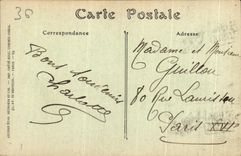 36
Carte Postale
Correspondance
Adresse
Bons souvenirs
Charlotte
Madame et Monsieur
Guillou
80 Rue Lauriston
Paris XVIe